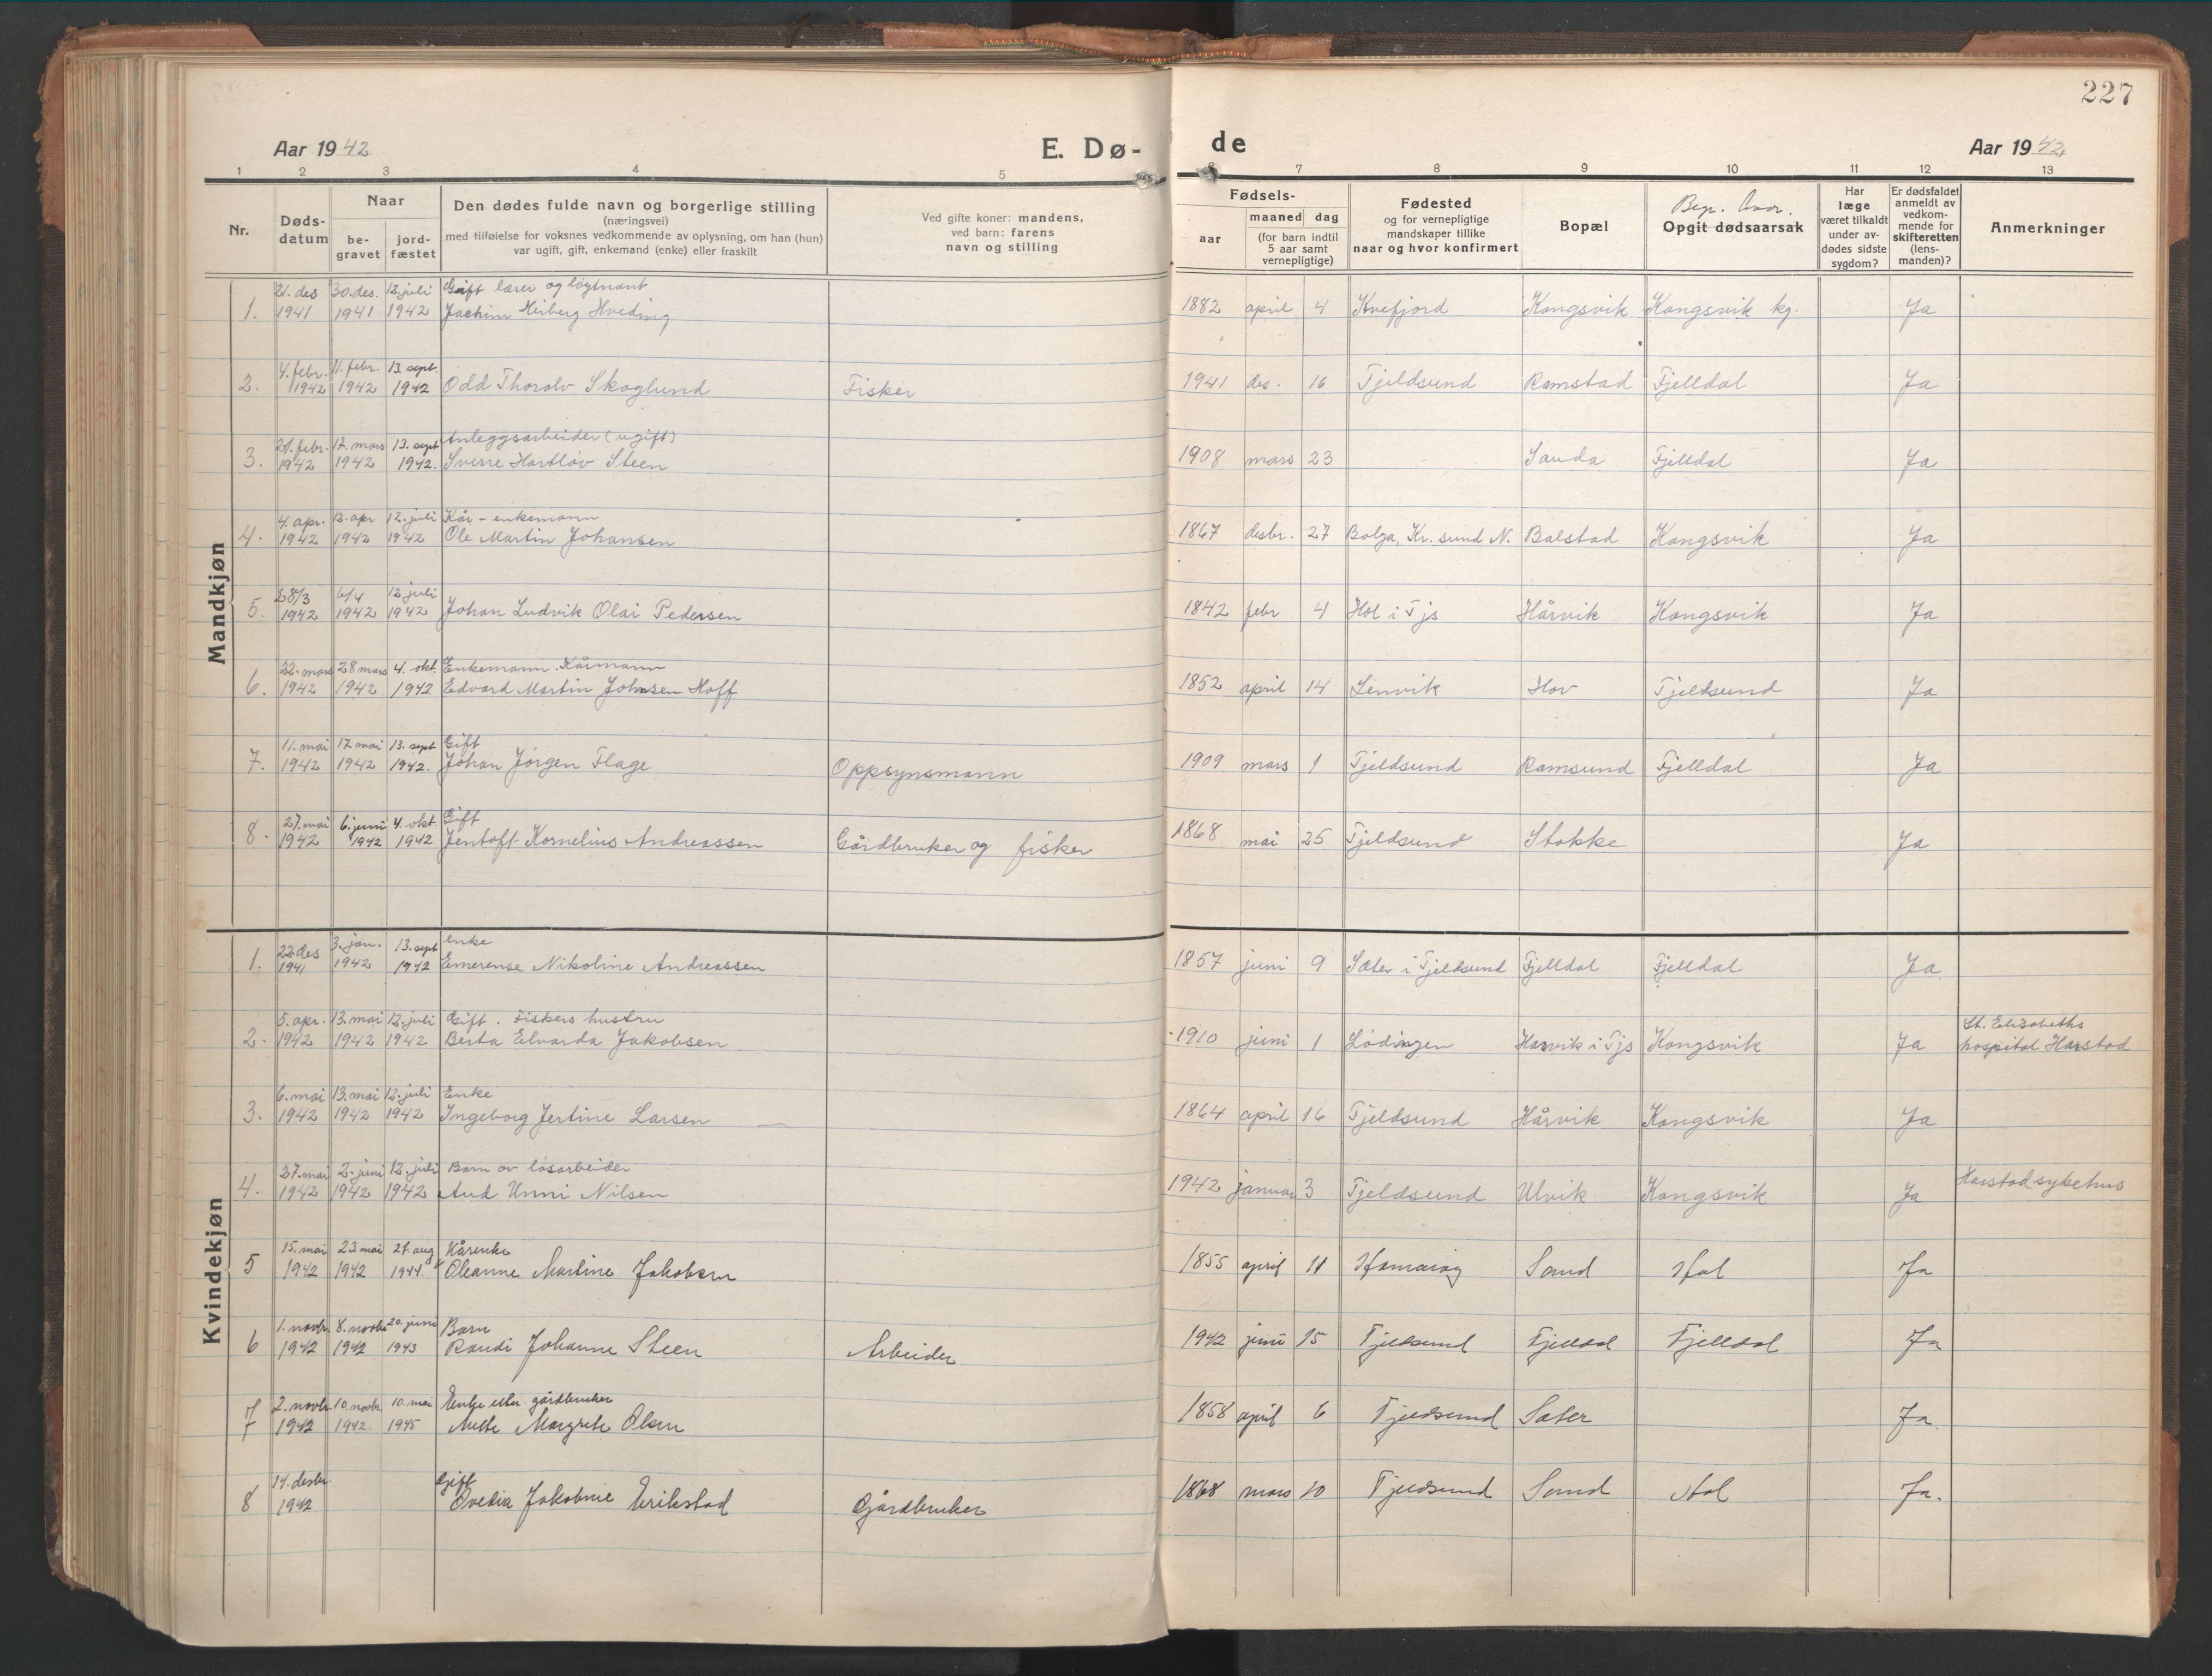 227
Aar 1942
E. Dø-
de
Aar 1942
1 2 3 4 5
6 7 8 9 10 11 12 13
Nr.
Døds-
datum
Naar
be-
gravet
jord-
fæstet
Den dødes fulde navn og borgerlige stilling
(næringsvei)
med tilføielse for voksnes vedkommende av oplysning, om han (hun)
var ugift, gift, enkemand (enke) eller fraskilt
Ved gifte koner: mandens,
ved barn: farens
navn og stilling
Fødsels-
aar
maaned dag
(for barn indtil
5 aar samt
vernepligtige)
Fødested
og for vernepligtige
mandskaper tillike
naar og hvor konfirmert
Bopæl
Opgit dødsaarsak
Har
læge
været tilkaldt
under av-
dødes sidste
sygdom?
Er dødsfaldet
anmeldt av
vedkom-
mende for
skifteretten
(lens-
manden)?
Anmerkninger
Mandkjøn
21. des 30. des. 12. juli Gift lærer og løytnant
1. 1941 1941 1942 Joachim Heiberg Hveding 1882 april 4 Kvefjord Kongsvik Kongsvik kg. Ja
4. febr. 11. febr. 13. sept.
2. 1942 1942 1942 Odd Thorolv Skoglund Fisker 1941 des. 16 Tjeldsund Ramstad Fjelldal Ja
febr. 12. mars 13. sept Anleggsarbeider (ugift)
3. 1942 1942 1942. Sverre Hartløv Steen 1908 mars 23 Sauda Fjelldal Ja
4. apr. 12. apr 12. juli Kår-enkemann
4. 1942 1942 1942 Ole Martin Johansen 1867 desbr. 27 Bolga, Kr.sund N. Balstad Kongsvik Ja
28/3 6/4 12 juli
5. 1942 1942 1942 Johan Ludvik Olai Pedersen 1842 febr 4 Hol i Tjs Hårvik Kongsvik Ja
22. mars 28 mars 4. okt. Enkemann. Kårmann
6. 1942 1942 1942 Edvard Martin Johnsen Hoff 1852 april 14 Lenvik Hov Tjeldsund Ja
11. mai 17. mai 13. sept Gift
7. 1942 1942 1942. Johan Jørgen Flage Oppsynsmann 1909 mars 1 Tjeldsund Ramsund Fjelldal Ja
27. mai 6. juni 4. okt. Gift
8. 1942 1942 1942 Jentoft Kornelius Andreassen Gårdbruker og fisker 1868 mai 25 Tjeldsund Stokke Ja
Kvindekjøn
22 des 3. jan. 13. sept enke
1. 1941 1942 1942 Emerense Nikoline Andreassen 1857 juni 9 Sæter i Tjeldsund Fjelldal Fjelldal Ja
5. apr. 13. mai 12. juli Gift. Fiskers hustru
2. 1942 1942 1942 Berta Elvarda Jakobsen 1910 juni 1 Lødingen Harvik i Tjs Kongsvik Ja St. Elisabeths
hospital Harstad
6. mai 13. mai 12. juli Enke
3. 1942 1942 1942 Ingeborg Jertine Larsen 1864 april 16 Tjeldsund Hårvik Kongsvik Ja
27. mai 2. juni 12. juli Barn av løsarbeider
4. 1942 1942 1942 Aud Unni Nilsen 1942 januar 3 Tjeldsund Ulvik Kongsvik Ja Harstad sykehus
15. mai 23. mai 27. aug Kårenke
5 1942 1942 1944. Oleanne Martine Jakobsen 1855 april 11 Hamarøy Sand Hol Ja
1. novbr. 8. novbr 20. juni Barn
6 1942 1942 1943 Randi Johanne Steen Arbeider 1942 juni 15 Tjeldsund Fjelldal Fjelldal Ja
2. novbr. 10. novbr. 10. mai Enke etter gårdbruker
7 1942 1942 1945 Mette Margrete Olsen 1858 april 6 Tjeldsund Sæter Ja.
14. desbr Gift
8 1942 Ovedia Jakobine Erikstad Gårdbruker 1868 mars 10 Tjeldsund Sand Hol Ja.